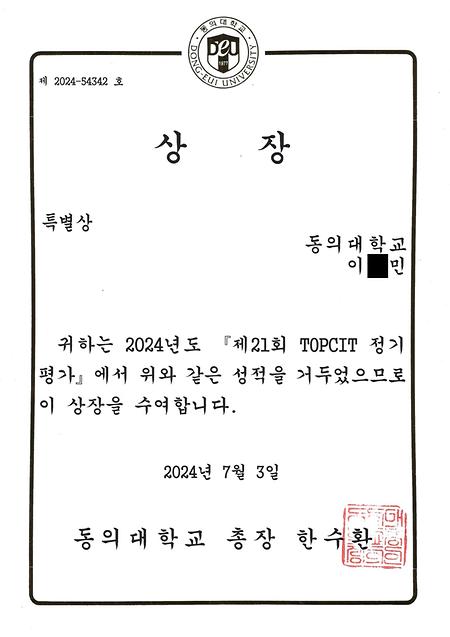 동의대학교
DEU
1977
DONG-EUI UNIVERSITY
제 2024-54342 호
상 장
특별상
동의대학교
이 민
귀하는 2024년도 『제21회 TOPCIT 정기
평가』에서 위와 같은 성적을 거두었으므로
이 상장을 수여합니다.
2024년 7월 3일
동의대학교 총장 한수환